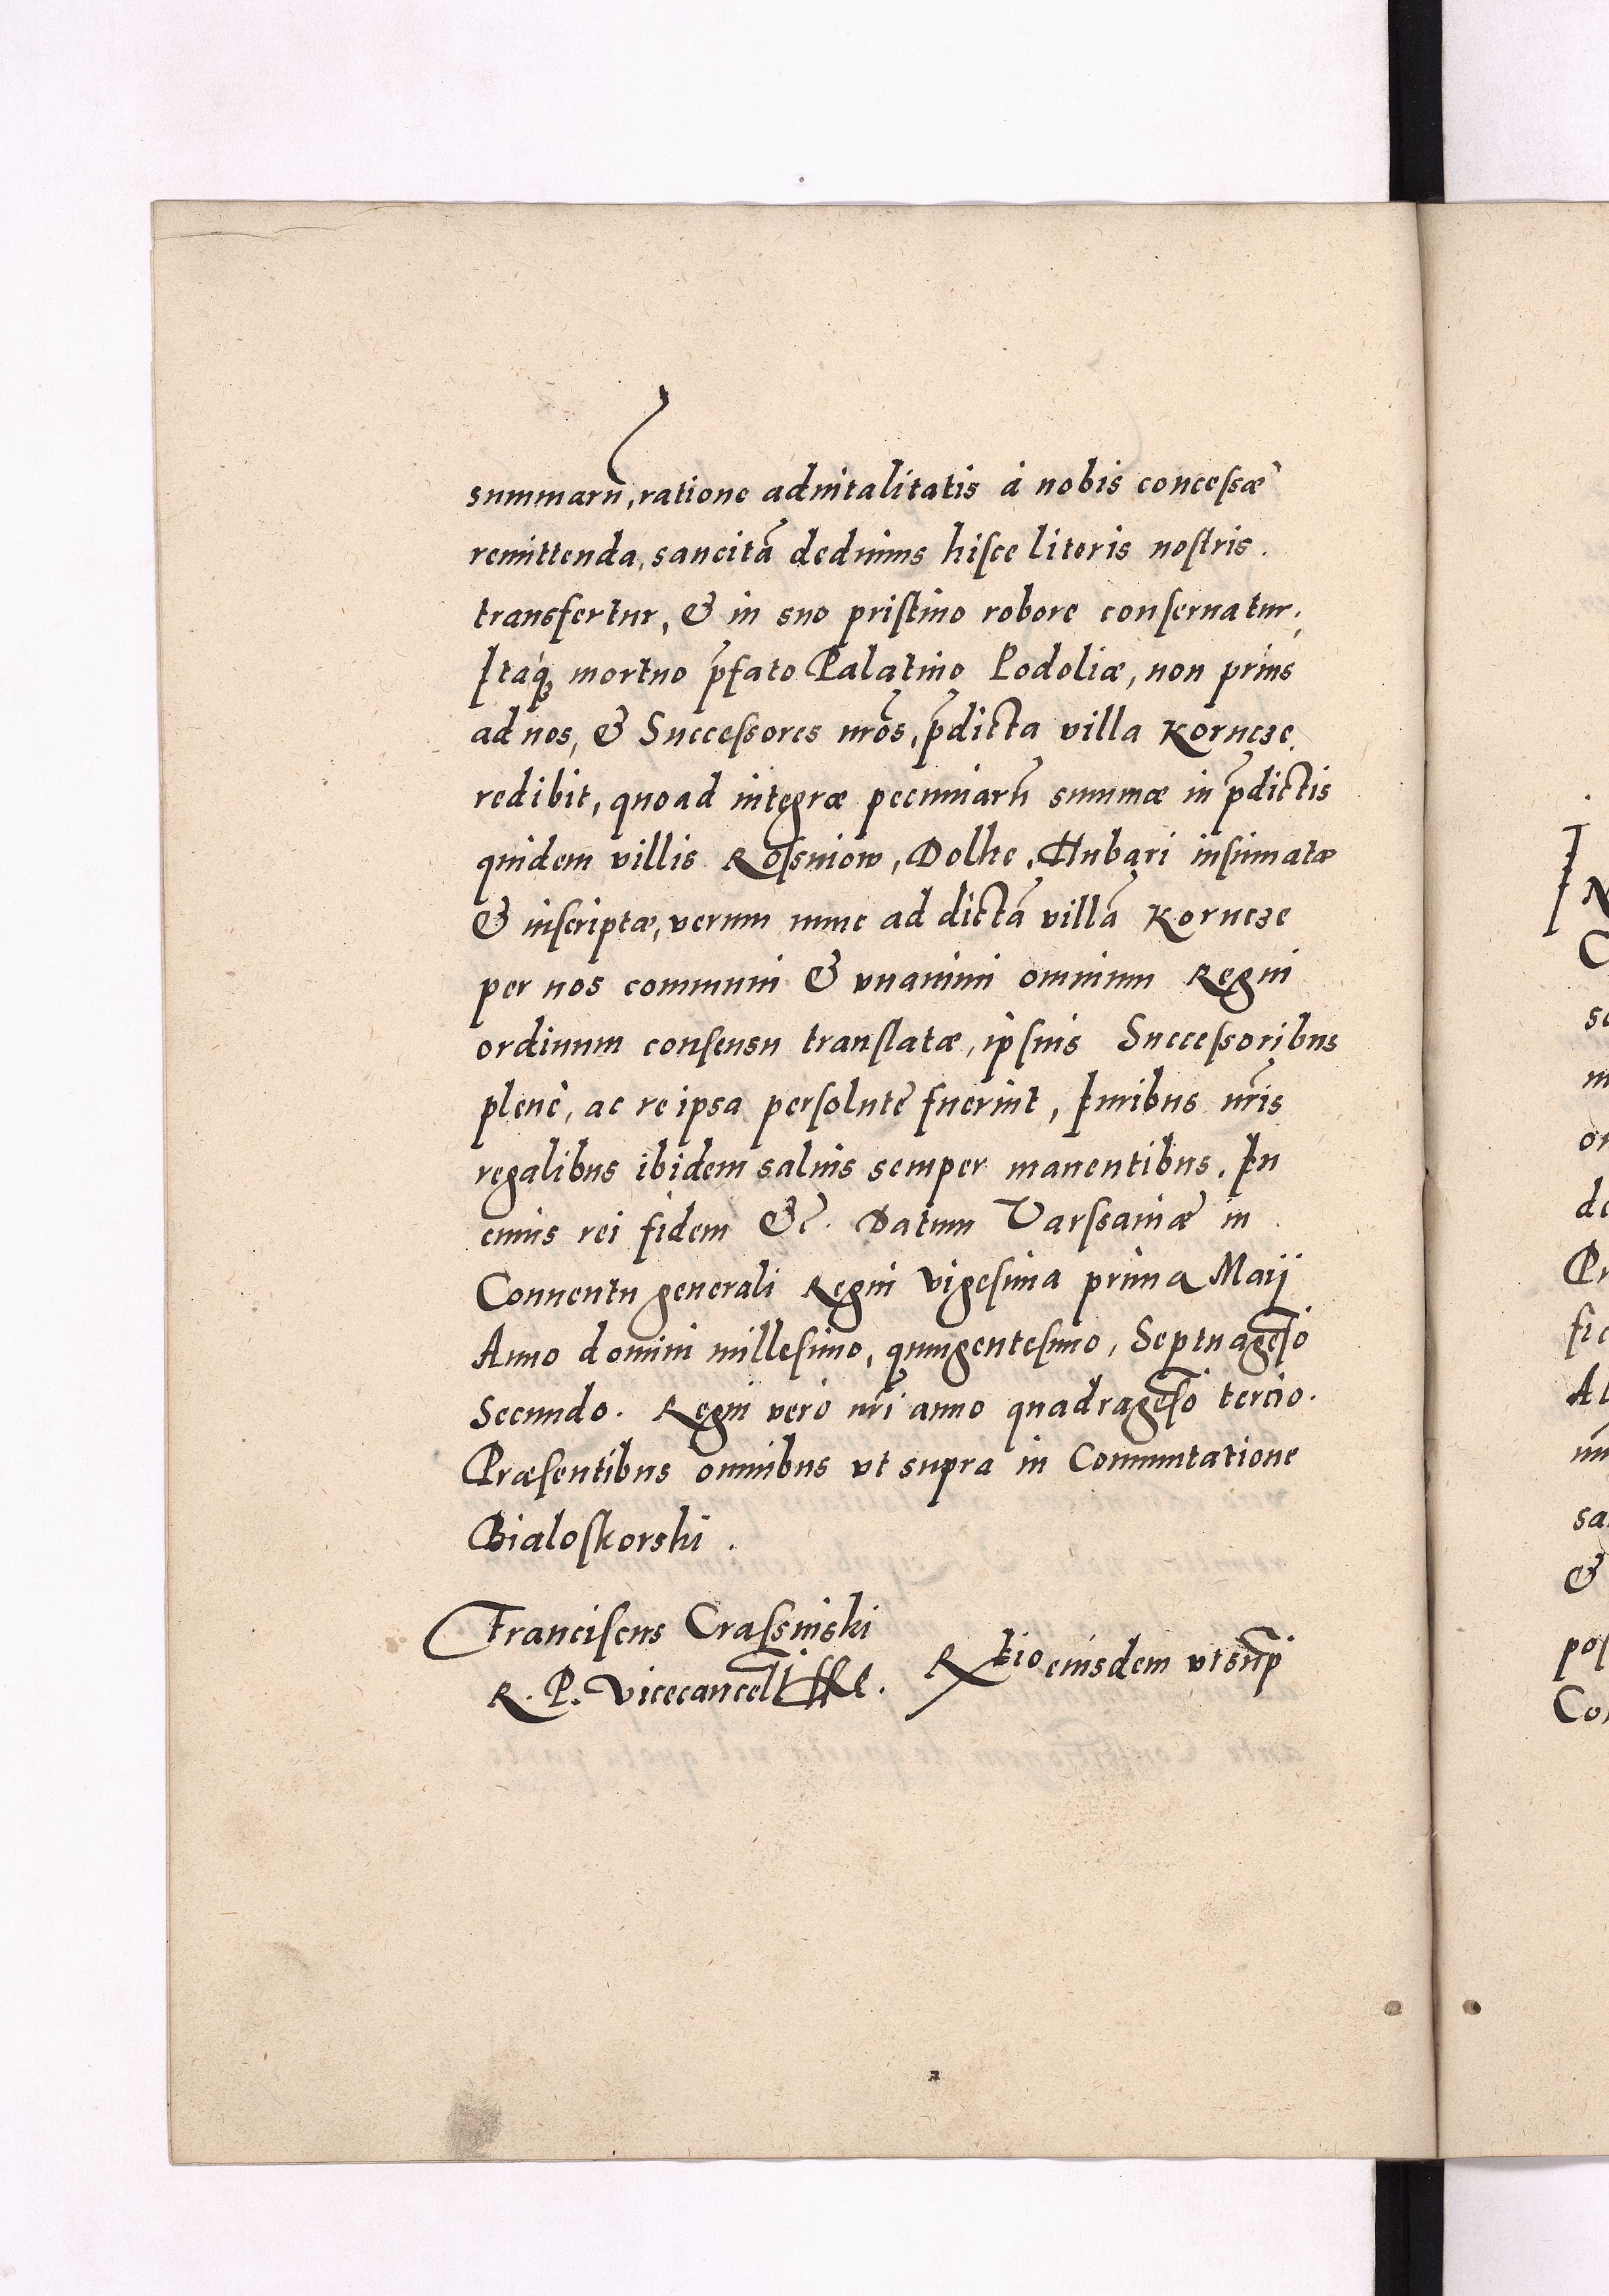 summarũ, ratione aduitalitatis à nobis concessæ
remittenda, sancitã deduimus hisce literis nostris.
transfertur, & in suo pristino robore conseruatur,
Itaq̃ꝫ mortuo p̃fato Palatino Podoliæ, non prius
ad nos, & Successores nr̃os, p̃dicta villa Korncze
redibit, quoad integræ pecuniarũ summæ in p̃dictis
quidem villis Rossniow, Dolhe, Hubari insumatæ
& inscriptæ, verum nunc ad dictã villã Korncze
per nos communi & vnanimi omnium Regni
ordinum consensu translatæ, ipsius Successoribus
plenè, ac re ipsa persolutè fuerint, Iuribus nr̃is
regalibus ibidem saluis semper manentibus. In
cuius rei fidem &c̃. Datum Varssauiæ in
Conuentu generali Regni vigesima prima Maij
Anno domini millesimo, quingentesimo, Septuagesĩo
Secundo. Regni verò nr̃i anno quadragesĩo tercio.
Præsentibus omnibus vt supra in Commutatione
Bialoskorski.
Franciscus Crassinski
R. P. Vicecancell̃
R̃tio eiusdem vt sup̃